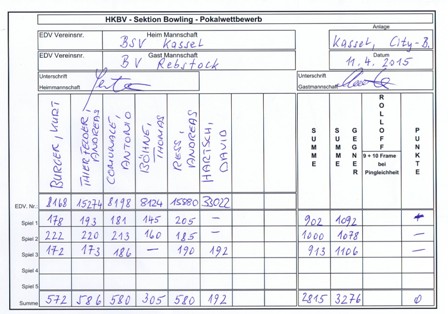 HKBV - Sektion Bowling - Pokalwettbewerb
EDV Vereinsnr. Heim Mannschaft Anlage
BSV Kassel Kassel, City-B.
EDV Vereinsnr. Gast Mannschaft Datum
BV Rebstock 11.4.2015
Unterschrift Unterschrift
Heimmannschaft Gastmannschaft
BURGER, KURT
THIERFELDER, ANDREAS
COMUNALE, ANTONIO
BÖHNE, THOMAS
RESS, ANDREAS
HARTSCH, DAVID
SUMME
GEGNER
ROLLOFF
9 + 10 Frame
bei
Pingleichheit
PUNKTE
EDV. Nr. 8168 15274 8198 8124 15580 33022
Spiel 1 178 193 181 145 205 — 902 1092
Spiel 2 222 220 213 160 185 — 1000 1078 —
Spiel 3 172 173 186 — 190 192 913 1106 —
Spiel 4
Spiel 5
Summe 572 586 580 305 580 192 2815 3276 0